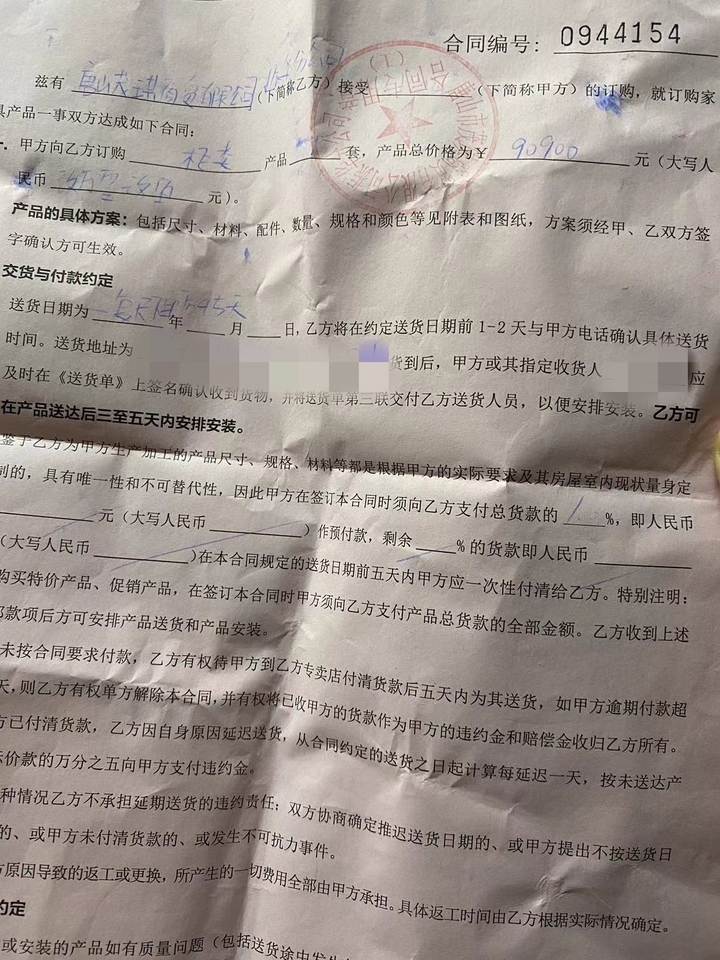 合同编号: 0944154
兹有 有限公司 (下简称乙方) 接受 (下简称甲方) 的订购，就订购家
具产品一事双方达成如下合同:
一. 甲方向乙方订购 产品 套，产品总价格为￥ 90900 元 (大写人
民币 元)。
产品的具体方案: 包括尺寸、材料、配件、数量、规格和颜色等见附表和图纸，方案须经甲、乙双方签
字确认方可生效。
交货与付款约定
送货日期为 45天 年 月 日, 乙方将在约定送货日期前 1-2 天与甲方电话确认具体送货
时间。送货地址为 货到后，甲方或其指定收货人 应
及时在《送货单》上签名确认收到货物，并将送货单第三联交付乙方送货人员，以便安排安装。乙方可
在产品送达后三至五天内安排安装。
鉴于乙方为甲方生产加工的产品尺寸、规格、材料等都是根据甲方的实际要求及其房屋室内现状量身定
制的，具有唯一性和不可替代性，因此甲方在签订本合同时须向乙方支付总货款的 %，即人民币
元（大写人民币 ）作预付款，剩余 % 的货款即人民币
(大写人民币 )在本合同规定的送货日期前五天内甲方应一次性付清给乙方。特别注明:
购买特价产品、促销产品，在签订本合同时甲方须向乙方支付产品总货款的全部金额。乙方收到上述
款项后方可安排产品送货和产品安装。
未按合同要求付款，乙方有权待甲方到乙方专卖店付清货款后五天内为其送货，如甲方逾期付款超
天，则乙方有权单方解除本合同，并有权将已收甲方的货款作为甲方的违约金和赔偿金收归乙方所有。
方已付清货款，乙方因自身原因延迟送货，从合同约定的送货之日起计算每延迟一天，按未送达产
价款的万分之五向甲方支付违约金。
种情况乙方不承担延期送货的违约责任: 双方协商确定推迟送货日期的、或甲方提出不按送货日
的、或甲方未付清货款的、或发生不可抗力事件。
方原因导致的返工或更换，所产生的一切费用全部由甲方承担。具体返工时间由乙方根据实际情况确定。
约定
或安装的产品如有质量问题（包括送货途中发生